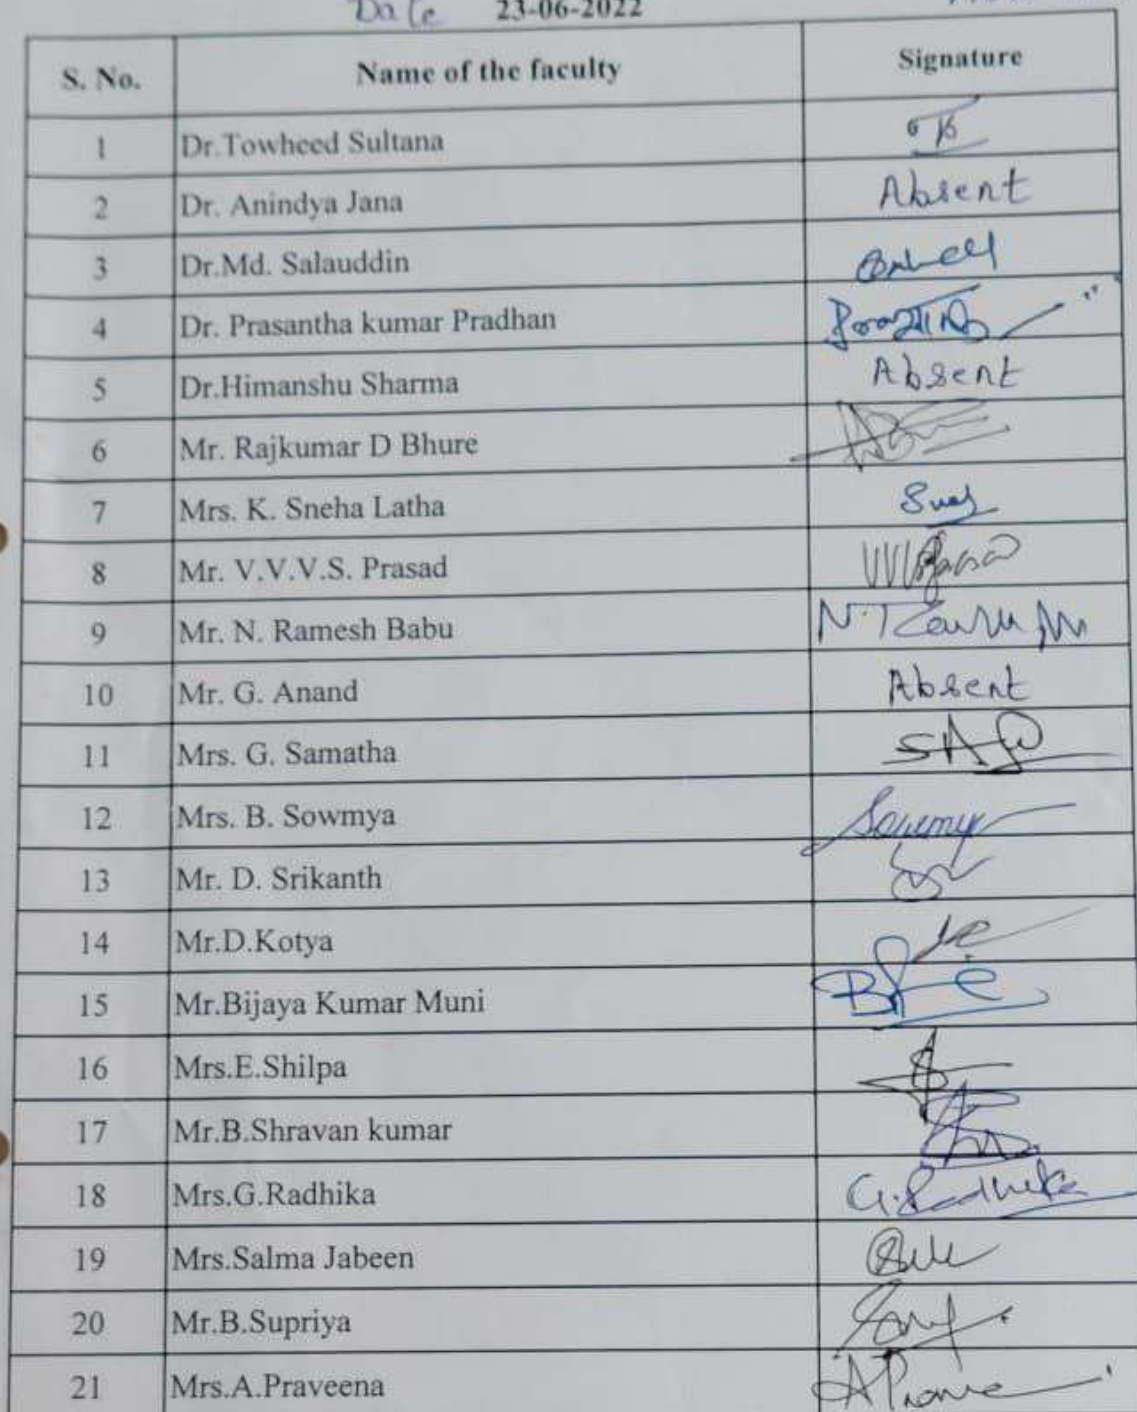 Date 23-06-2022
S. No. Name of the faculty Signature
1 Dr.Towheed Sultana
2 Dr. Anindya Jana Absent
3 Dr.Md. Salauddin
4 Dr. Prasantha kumar Pradhan
5 Dr.Himanshu Sharma Absent
6 Mr. Rajkumar D Bhure
7 Mrs. K. Sneha Latha
8 Mr. V.V.V.S. Prasad
9 Mr. N. Ramesh Babu
10 Mr. G. Anand Absent
11 Mrs. G. Samatha
12 Mrs. B. Sowmya Sowmya
13 Mr. D. Srikanth
14 Mr.D.Kotya
15 Mr.Bijaya Kumar Muni
16 Mrs.E.Shilpa
17 Mr.B.Shravan kumar
18 Mrs.G.Radhika G.Radhika
19 Mrs.Salma Jabeen
20 Mr.B.Supriya
21 Mrs.A.Praveena